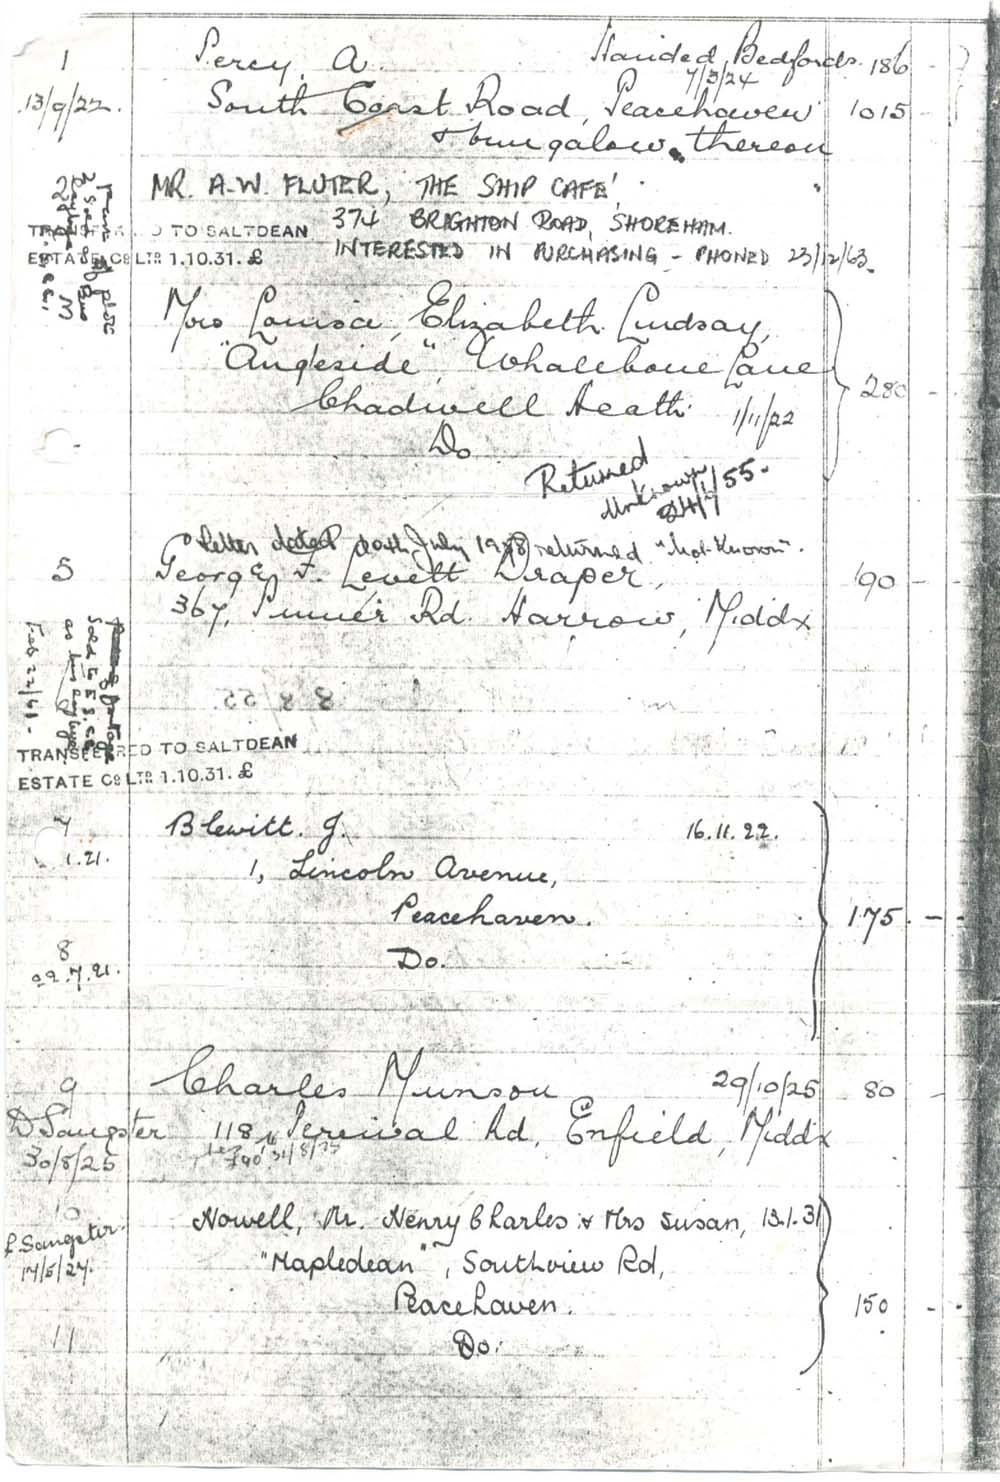 1 Percy, A. Handed Bedfords. 186
7/3/24
13/9/22. South Coast Road, Peacehaven 1015
& bungalow thereon
MR. A.W. FLUTER, 'THE SHIP CAFE'
374 BRIGHTON ROAD, SHOREHAM.
INTERESTED IN PURCHASING - PHONED 23/12/63.
TRANSFERRED TO SALTDEAN
ESTATE Co LTD 1.10.31. £
Mrs Louisa, Elizabeth Lindsay,
"Angleside", Whalebone Lane 280
Chadwell Heath 1/11/22
Do
Returned
Unknown
/55.
Letter dated 20th July 1958 returned "Not Known".
5 George F. Levett Draper, 190
367, Pinner Rd. Harrow, Middx
Sold to
Feb 22/61.
8/8/55
TRANSFERRED TO SALTDEAN
ESTATE Co LTD 1.10.31. £
7 Blewitt. J. 16.11.22.
1.21.
1, Lincoln Avenue,
Peacehaven. 175
8 Do.
22.7.21.
9 Charles Munson 29/10/25 80
D Sangster 118, Percival Rd, Enfield, Middx
30/8/25
10 Howell, Mr. Henry Charles & Mrs Susan, 13.1.31
Sangster
17/5/27. "Mapledean", Southview Rd,
Peacehaven. 150
11 Do.